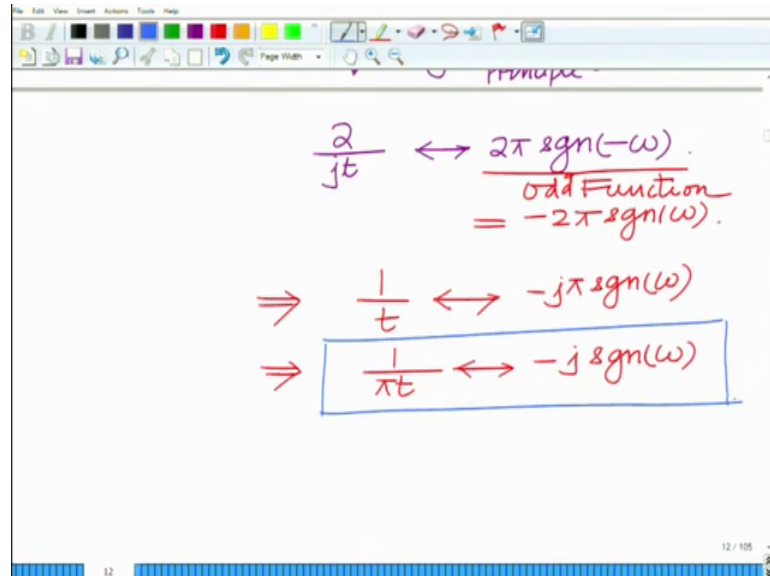 File Edit View Insert Actions Tools Help
B I
Page Width
principle
2/jt ↔ 2π sgn(-ω).
Odd Function
= -2π sgn(ω).
⇒ 1/t ↔ -jπ sgn(ω)
⇒ 1/πt ↔ -j sgn(ω)
12 / 105
12